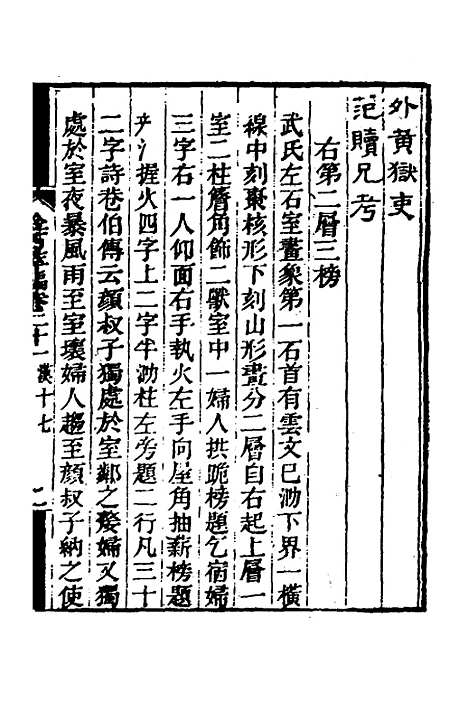 外黄獄吏
范贖兄考
右第二層三榜
武氏左右室畫象第一石首有雲文已泐下界一橫
線中刻棗核形下刻山形畫分二層自右起上層一
室二柱簷角飾二獸室中一婦人拱跪榜題乞宿婦
三字右一人仰面右手執火左手向屋角抽薪榜題
握火四字上二字半泐柱左旁題二行凡三十
二字詩巷伯傳云顔叔子獨處於室鄰之嫠婦又獨
處於室夜暴風雨至室壞婦人趨至顔叔子納之使
二十一 漢十七